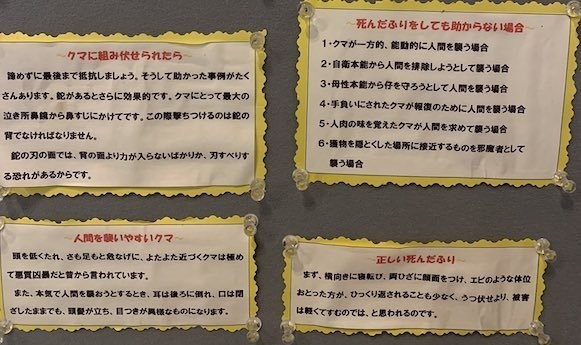 ～クマに組み伏せられたら～
諦めずに最後まで抵抗しましょう。そうして助かった事例がたく
さんあります。鉈があるとさらに効果的です。クマにとって最大の
泣き所鼻鏡から鼻すじにかけてです。この際撃ちつけるのは鉈の
背でなければなりません。
鉈の刃の面では、背の面より力が入らないばかりか、刃すべりす
る恐れがあるからです。
～死んだふりをしても助からない場合～
1・クマが一方的、能動的に人間を襲う場合
2・自衛本能から人間を排除しようとして襲う場合
3・母性本能から仔を守ろうとして人間を襲う場合
4・手負いにされたクマが報復のために人間を襲う場合
5・人肉の味を覚えたクマが人間を求めて襲う場合
6・獲物を隠とくした場所に接近するものを邪魔者として
襲う場合
～人間を襲いやすいクマ～
頭を低くたれ、さも足もと危なげに、よたよた近づくクマは極め
て悪質凶暴だと昔から言われています。
また、本気で人間を襲おうとするとき、耳は後ろに倒れ、口は閉
ざしたままでも、頭髪が立ち、目つきが異様なものになります。
～正しい死んだふり～
まず、横向きに寝転び、両ひざに顔面をつけ、エビのような体位
おとった方が、ひっくり返されることも少なく、うつ伏せより、被害
は軽くてすむのでは、と思われるのです。